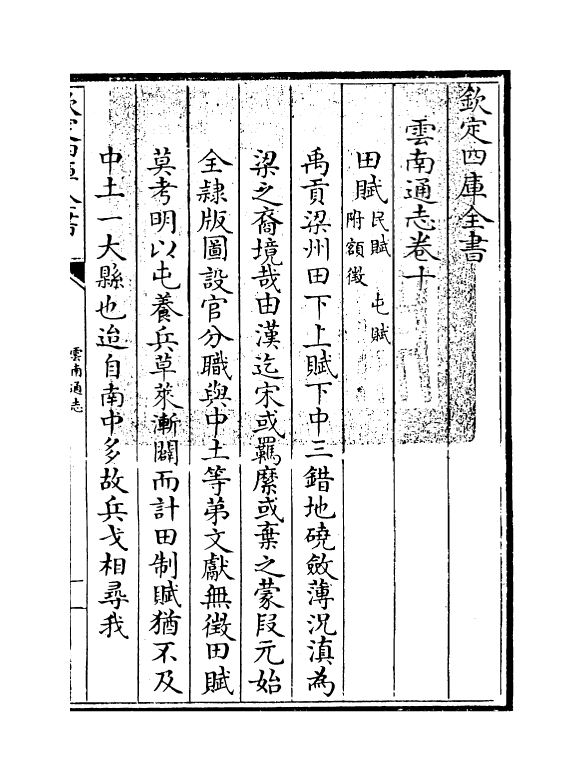 欽定四庫全書
雲南通志卷十
田賦 民賦 屯賦
附額徵
禹貢梁州田下上賦下中三錯地磽斂薄況滇為
梁之裔境哉由漢迄宋或羈縻或棄之蒙段元始
全隷版圖設官分職與中土等苐文獻無徵田賦
莫考明以屯養兵草萊漸闢而計田制賦猶不及
中土一大縣也迨自南中多故兵戈相尋我
欽定四庫全書
雲南通志